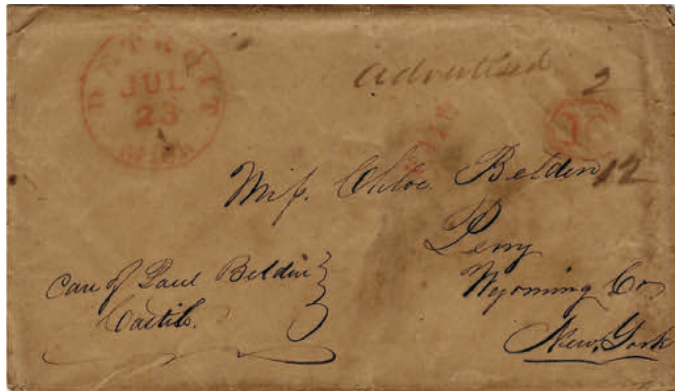 DETROIT
JUL
23
MICH
Advertised
2
10
Miss. Chloe Belden
12
Perry
Wyoming Co
New, York
Care of Paul Belden
Castile.